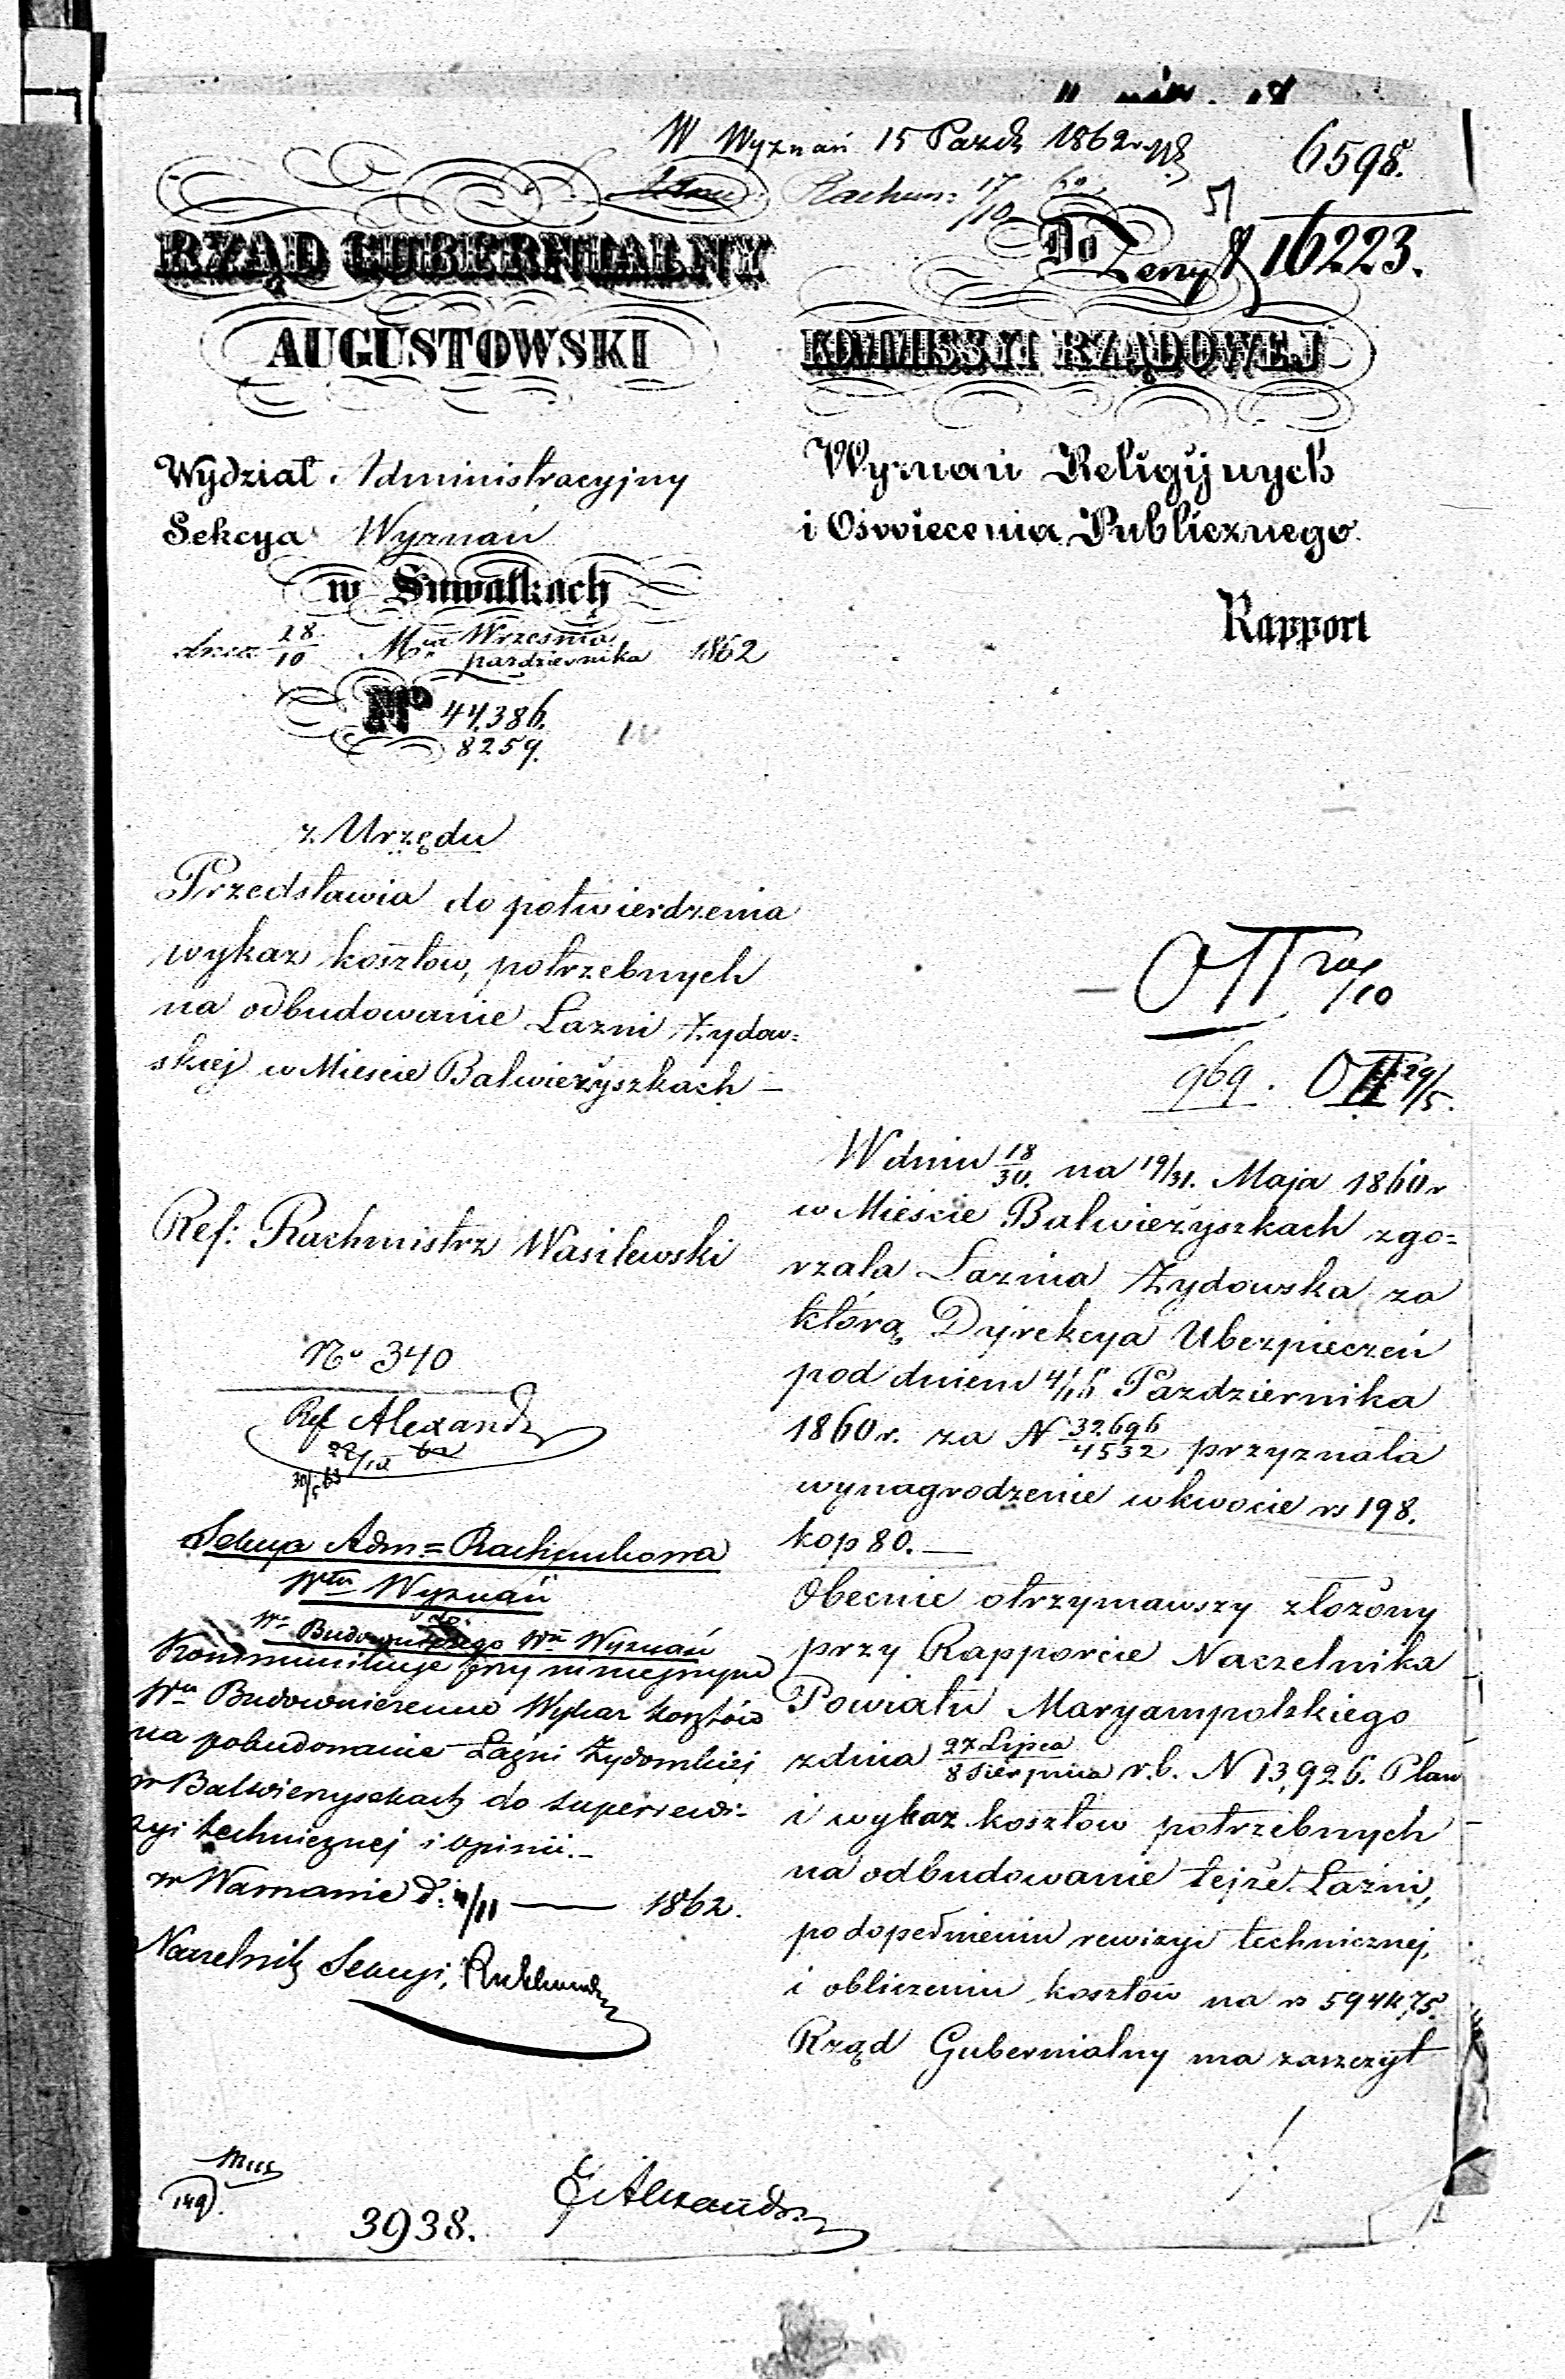 W Wyznań 15 Pazdz 1862
6598.
Rachun: 17/10
Do
16223.
RZĄD GUBERNIALNY
AUGUSTOWSKI
KOMMISSYI RZĄDOWEJ
Wydział Administracyjny
Sekcya Wyznań
w Suwałkach
dnia 28/10 Mca Września/pazdziernika 1862
No 44,386.
8259.
Wyznań Religijnych
i Oświecenia Publicznego
Rapport
z Urzędu
Przedstawia do potwierdzenia
wykaz kosztow, potrzebnych
na odbudowanie Łazni Żydow=
skiej w Mieście Balwierzyszkach –
Ref: Rachmistrz Wasilewski
No 340
Ref Alexand
22/10 62
30/5 63
Sekcya Adm= Rachunkowa
Włu Wyznań
Wo Budowniczego Wu Wyznań
Kommunikuje przy niniejszym
Wu Budowniczemu Wykaz kosztów
na pobudowanie Łaźni Żydowskiej
w Balwierzyszkach do superrewi-
zyi technicznej i opinii.–
w Warszawie d: 4/11 — 1862.
Naczelnik Sekcyi,
149.
3938.
Alexandr
OII 20/10
969. OII 29/5.
W dniu 18/30. na 19/31. Maja 1860 r
w Mieście Balwierzyszkach zgo=
rzała Łaznia Żydowska za
którą Dyrekcya Ubezpieczeń
pod dniem 4/16 Pazdziernika
1860 r. za N 32696/4532 przyznała
wynagrodzenie w kwocie rs 198.
kop 80.—
Obecnie otrzymawszy złożony
przy Rapporcie Naczelnika
Powiatu Maryampolskiego
z dnia 27 Lipca/8 Sierpnia r.b. N 13,926. Plan
i wykaz kosztow potrzebnych
na odbudowanie tejże Łazni,
po dopełnieniu rewizyi technicznej,
i obliczeniu kosztow na rs 594 k 75.
Rząd Gubernialny ma zaszczyt